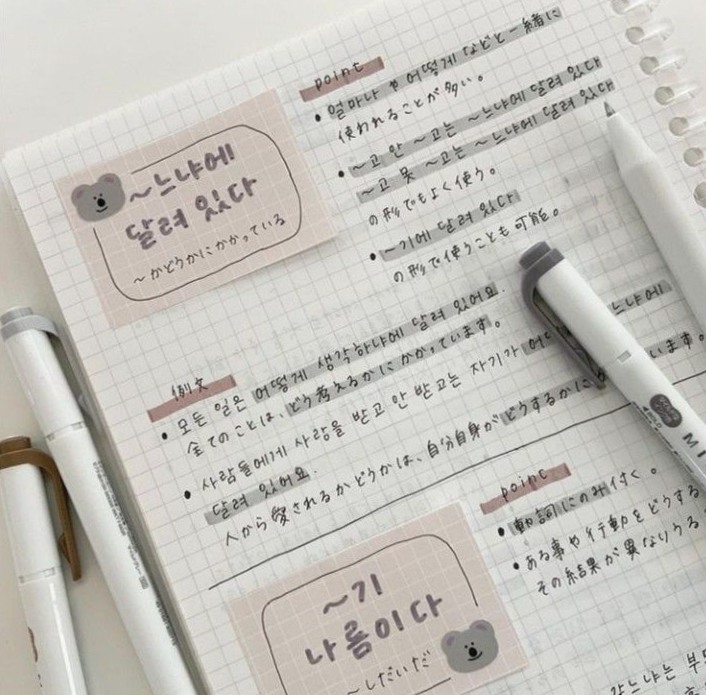 ~느냐에
달려 있다
~かどうかにかかっている
point
• 얼마나 や 어떻게 などと一緒に
使われることが多い。
• ~고 안 ~고는 ~느냐에 달려 있다
~고 못 ~고는 ~느냐에 달려 있다
の形でもよく使う。
• ~기에 달려 있다
の形で使うことも可能。
例文
• 모든 일은 어떻게 생각하냐에 달려 있어요.
全てのことは、どう考えるかにかかっています。
• 사람들에게 사랑을 받고 안 받고는 자기가 느냐에
달려 있어요.
人から愛されるかどうかは、自分自身がどうするかに います。
~기
나름이다
~しだいだ
point
• 動詞にのみ付く。
• ある事や行動をどうする
その結果が異なりうる
MI